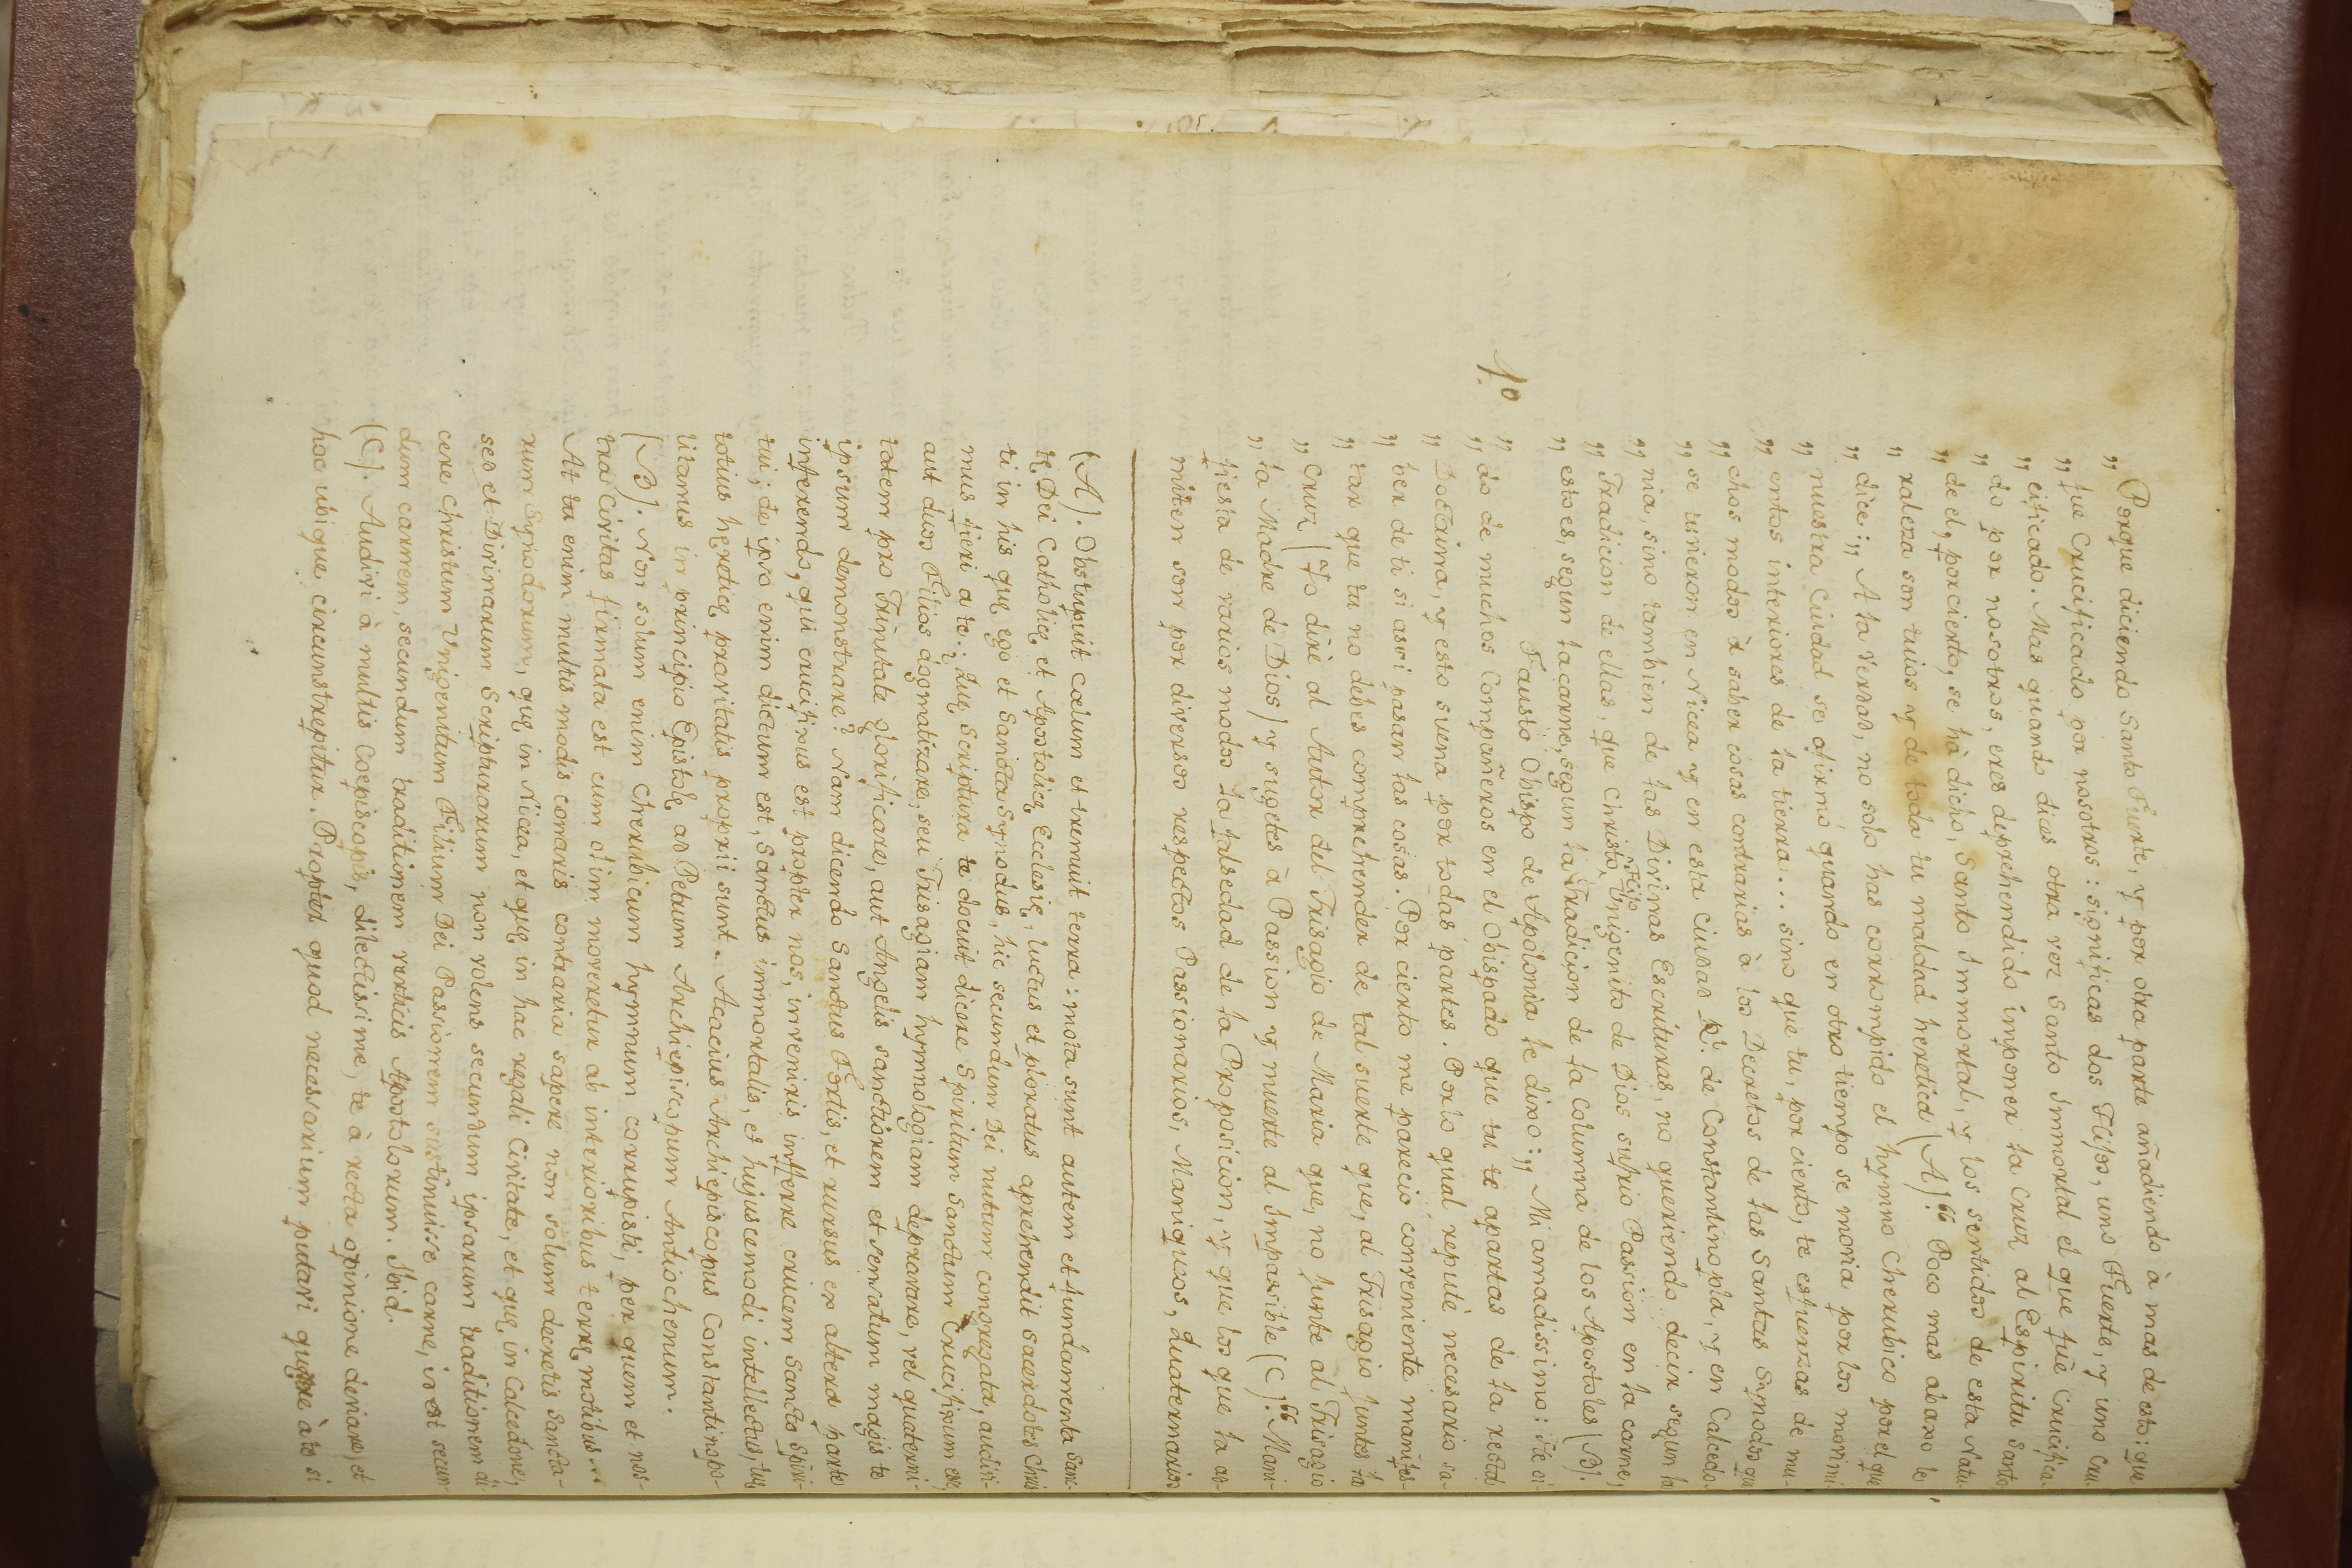 „ Porque diciendo Santo Fuerte, y por otra parte añadiendo à mas de esto: que
„ fue Crucificado por nosotros: significas dos Hijos, uno Fuerte, y uno Cru-
„ cificado. Mas quando dices otra vez Santo Immortal el que fuè Crucifica-
„ do por nosotros, eres deprehendido imponer la Cruz al Espiritu Santo
„ de el, por cierto, se hà dicho, Santo Immortal, y los sentidos de esta Natu-
„ raleza son tuios y de toda tu maldad heretica (A).“ Poco mas abaxo le
„ dice: „ A la verdad, no solo has corrompido el hymno Cherubico por el que
„ nuestra Ciudad se afirmó quando en otro tiempo se movia por los movimi-
„ entos interiores de la tierra... sino que tu, por cierto, te esfuerzas de mu-
„ chos modos à saber cosas contrarias à los Decretos de las Santas Synodos que
„ se tuvieron en Nicea y en esta Ciudad Rl. de Constantinopla, y en Calcedo-
„ nia, sino tambien de las Divinas Escrituras, no queriendo decir segun la
„ Tradicion de ellas, que Christo Hijo Unigenito de Dios sufrio Passion en la carne,
„ esto es, segun la carne, segun la Tradicion de la Columna de los Apostoles (B).
Fausto Obispo de Apolonia le dixo: „ Mi amadissimo: he oi-
„ do de muchos Compañeros en el Obispado que tu te apartas de la recta
10
„ Doctrina, y esto suena por todas partes. Por lo qual reputè necesario sa-
„ ber de ti si assi pasan las cosas. Por cierto me parecio conveniente manifes-
„ tar que tu no debes comprehender de tal suerte que, al Trisagio juntes la
„ Cruz (Yo dirè al Autor del Trisagio de Maria que, no junte al Trisagio
„ la Madre de Dios) y sugetes à Passion y muerte al Impassible (C).“ Mani-
fiesta de varios modos la falsedad de la Proposicion, y que los que la ad-
miten son por diversos respectos Passionarios, Maniqueos, Quaternarios
(A). Obstupuit coelum et tremuit terra: mota sunt autem et fundamenta Sanc-
tę Dei Catholicę et Apostolicę Ecclesię, luctus et ploratus aprehendit sacerdotes Chris-
ti in his quę ego et Sancta Synodus, hic secundum Dei nutum congregata, audivi-
mus fieri a te: Quę Scriptura te docuit dicere Spiritum Sanctum Crucifixum esse,
aut duos Filios dogmatizare, seu Trisagiam hymnologiam depravare, vel quaterni-
tatem pro Trinitate glorificare, aut Angelis sanctiorem et sensatum magis te
ipsum demonstrare? Nam dicendo Sanctus Fortis, et rursus ex altera parte
inferendo, qui crucifixus est propter nos, inveniris inferre crucem Sancto Spiri-
tui; de ipso enim dictum est, Sanctus immortalis, et hujuscemodi intellectus, tuę
totius hęreticę pravitatis proprii sunt. Acacius Archiepiscopus Constantinopo-
litanus in principio Epistolę ad Petrum Archiepiscopum Antiochenum.
(B). Non solum enim Cherubicum hymnum corrupisti, per quem et nos-
tra Civitas firmata est cum olim moveretur ab interioribus terrę motibus...
At tu enim multis modis conaris contraria sapere non solum decretis Sancta-
rum Synodorum, quę in Nicea, et quę in hac regali Civitate, et quę in Calcedone;
sed et Divinarum Scripturarum non volens secundum ipsarum traditionem di-
cere Christum Unigenitum Filium Dei Passionem sustinuisse carne, id est secun-
dum carnem, secundum traditionem verticis Apostolorum. Ibid.
(C). Audivi à multis Coepiscopis, dilectissime, te à recta opinione deviare, et
hoc ubique circunstrepitur. Propter quod necessarium putavi quęrere à te si